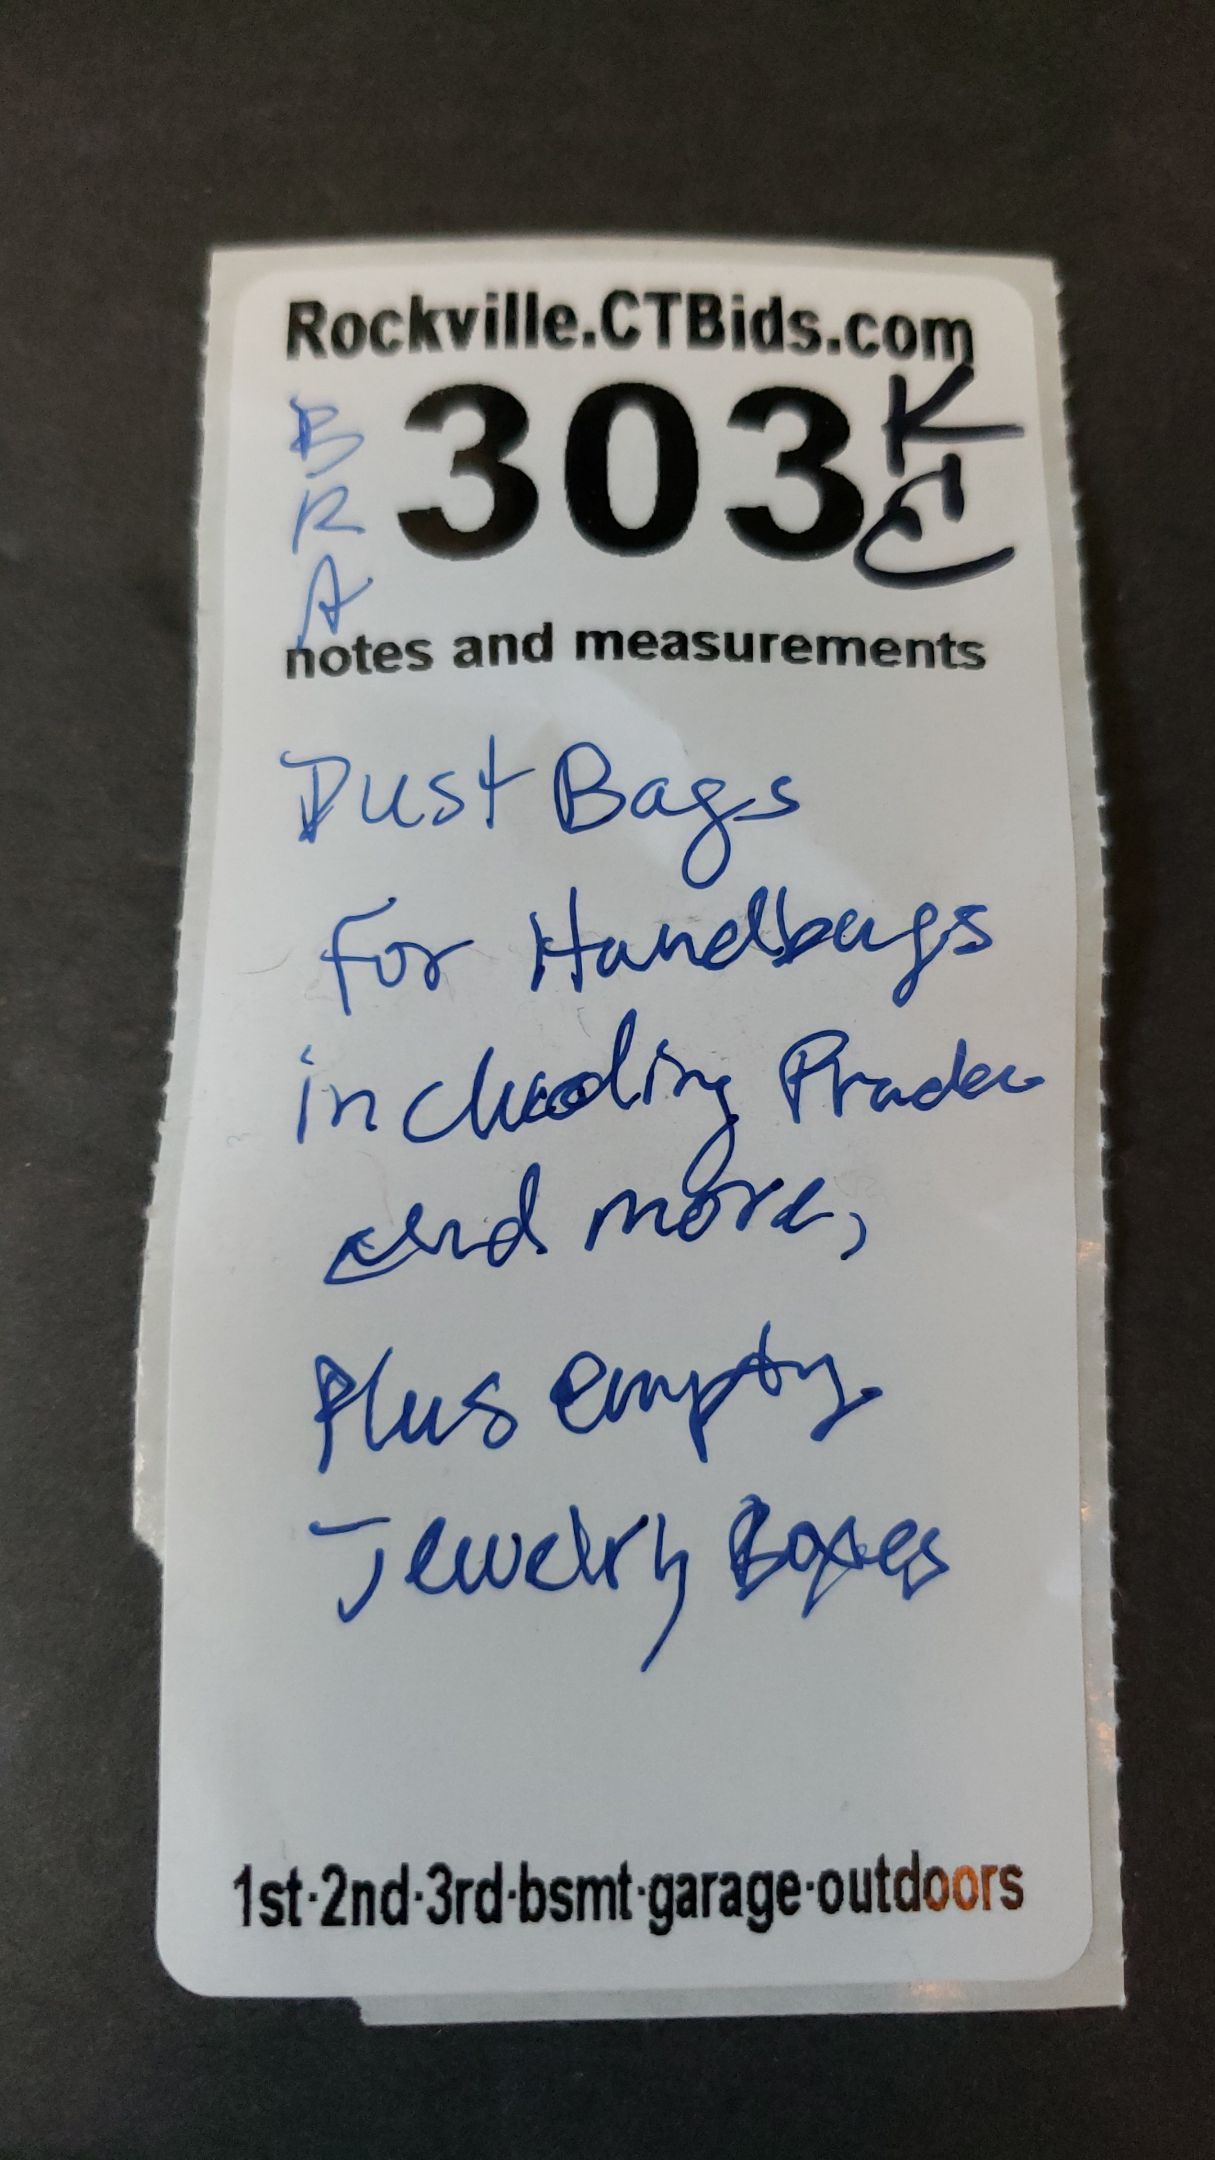 Rockville.CTBids.com
B
R
A
303
K
notes and measurements
Dust Bags
For Handbags
including Prada
and more,
Plus empty
Jewelry Boxes
1st·2nd·3rd·bsmt·garage·outdoors